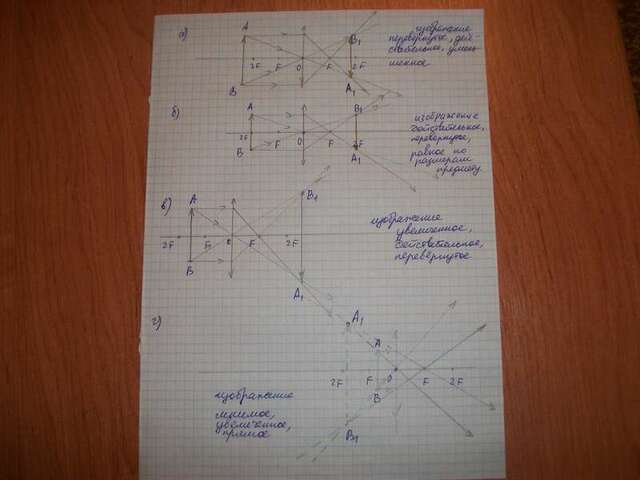 а)
A
B
2F
F
O
F
2F
B₁
A₁
изображение
перевернутое, дей-
ствительное, умень-
шенное
б)
A
B
2F
F
O
F
2F
B₁
A₁
изображение
действительное,
перевернутое,
равное по
размерам
предмету
в)
A
B
2F
F
O
F
2F
B₁
A₁
изображение
увеличенное,
действительное,
перевернутое
г)
A₁
A
2F
F
O
F
2F
B
B₁
изображение
мнимое,
увеличенное,
прямое